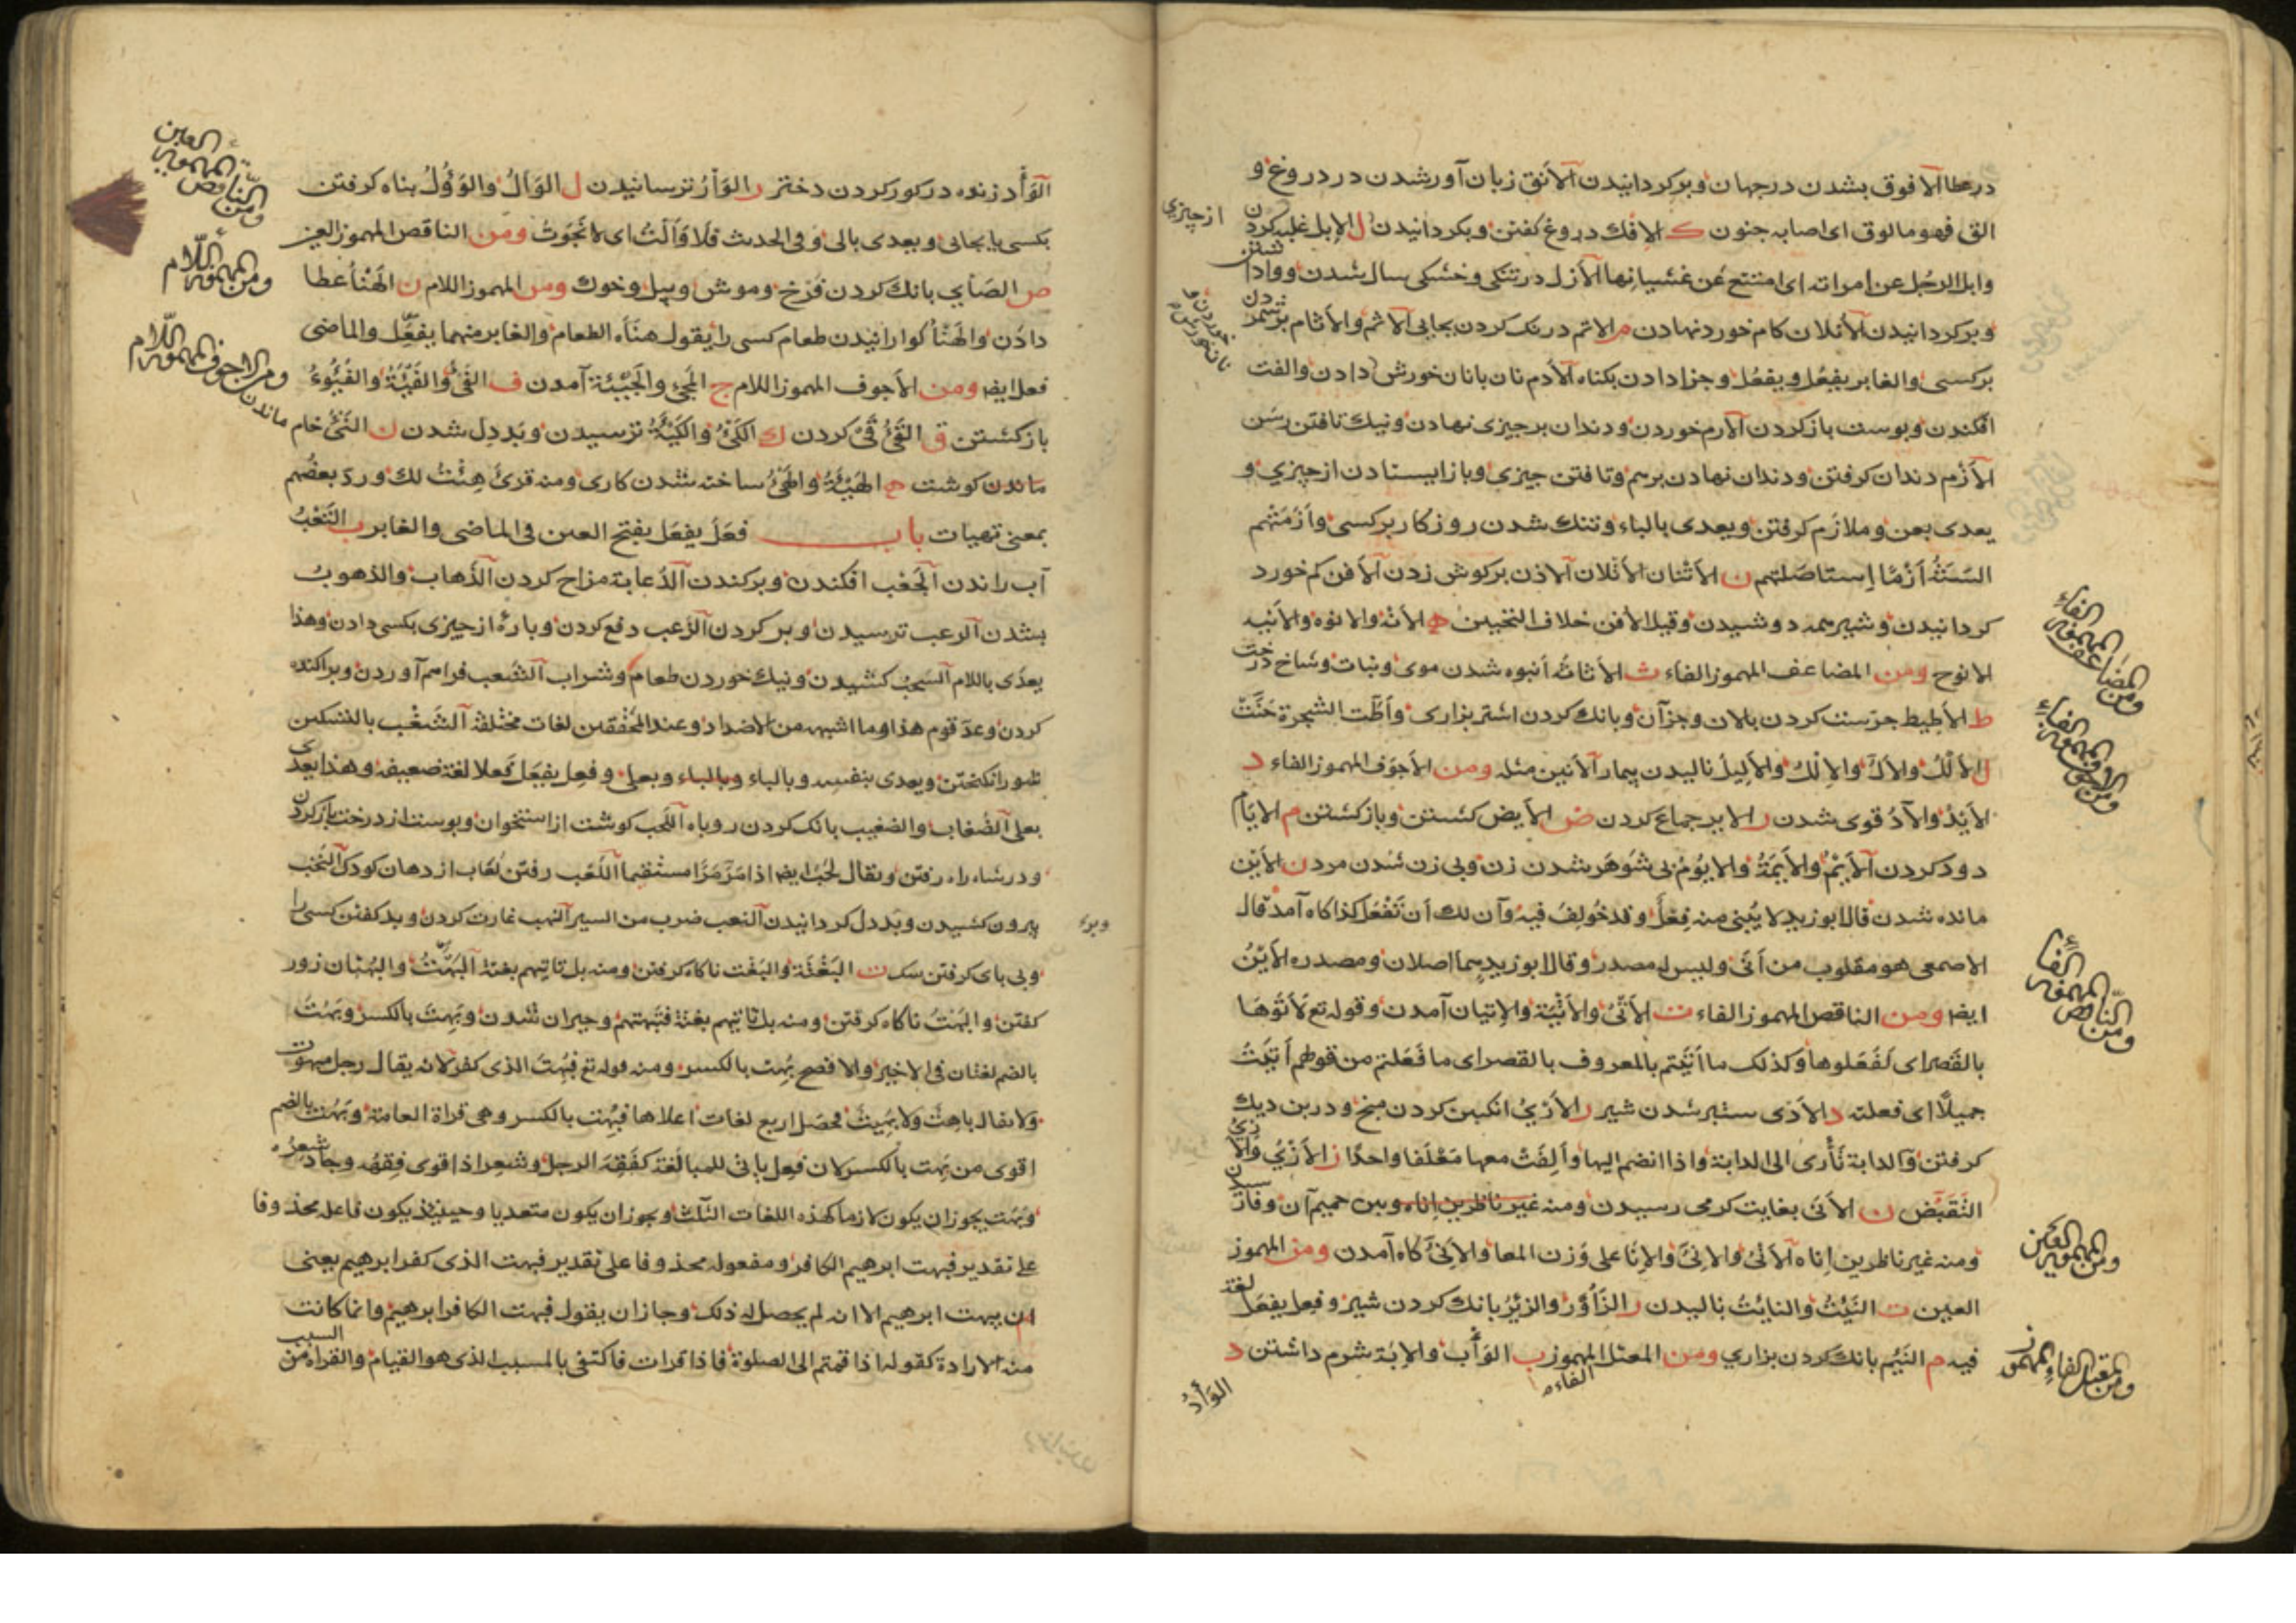 در عطا الافوق بشدن در جهان وبركردانيدن الانق زبان آور شدن در دروغ و
القى فهو مالوق اى اصابه جنون ك الافك دروغ كفتن وبكردانيدن ل الابل غلبه كردن
از چيزي
وابل الرجل عن امراته اى امتنع عن غشيانها الازل در تنكى وخشكى سال شدن ووادا
وبركردانيدن الاتلان كام خورد نهادن م الاتم درنك كردن بجايى الاثم والاثام
بركسى والغابر يفعِل ويفعُل وجزا دادن بكناه الادم نان با نان خورش دادن والفت
افكندن وپوست باز كردن الارم خوردن ودندان بر چيزى نهادن ونيك تافتن رسن
الأزم دندان كرفتن ودندان نهادن برهم وتافتن چيزي وباز ايستادن از چيزي و
يعدى بعن وملازم كرفتن ويعدى بالباء وتنك شدن روزكار بركسى وأزمتهم
السنة أزما استاصلتهم ن الاتنان الاتلان الاذن بركوش زدن الافن كم خورد
كردانيدن وشير همه دوشيدن وقيل الافن خلاف التحيين ه الانه والانوه والانيه
الانوح ومن المضاعف المهموز الفاء ث الاثاثة انبوه شدن موى ونبات وشاخ درخت
ومن المضاعف المهموز الفاء
ط الأطيط جرست كردن پالان وجز آن وبانك كردن اشتر بزارى وأطت الشجرة حنت
ل الألل والأل والالل والأليل ناليدن بيمار الأنين مثله ومن الأجوف المهموز الفاء د
ومن الاجوف المهموز الفاء
الأيد والآد قوى شدن ر الاير جماع كردن ض الأيض كشتن وباز كشتن م الايام
دود كردن الأيم والأيمة والايوم بى شوهر شدن زن وبى زن شدن مرد ن الأين
مانده شدن قال ابو زيد لا يبنى منه فعل وقد خولف فيه وآن لك أن تفعل كذا كاه آمد قال
الاصمعى هو مقلوب من أنى وليس له مصدر وقال ابو زيد هما اصلان ومصدره الأين
ايضا ومن الناقص المهموز الفاء ت الأتى والأتية والإتيان آمدن وقوله تع لأتوها
ومن الناقص المهموز الفاء
بالقصر اى لفعلوها وكذلك ما أتيتم بالمعروف بالقصر اى ما فعلتم من قولهم أتيت
جميلا اى فعلته د الأدى ستبر شدن شير ر الأري انكبين كردن منج ودر بن ديك
كرفتن والدابة تأرى الى الدابة واذا انضم اليها وألفت معها معلفا واحدا ز الأزي والأزي
التقبض ن الأنى بغايت كرمى رسيدن ومنه غير ناظرين اناه وبين حميم آن وفاتر
ومنه غير ناظرين إناه الأنى والانى والإنا على وزن المعا والإنى كاه آمدن ومن المهموز
ومن المهموز العين
العين ت النئيت والنايت ناليدن ر الزأر والزئير بانك كردن شير وفعل يفعل لغة
فيه م النئيم بانك كردن بزاري ومن المعتل المهموز ب الوأب والإبة شرم داشتن د
الفاء
الوأد
الوأد زنده در كور كردن دختر ر الوأر ترسانيدن ل الوأل والوؤل پناه كرفتن
بكسى يا بجايى ويعدى بالى وفى الحديث فلا وألت اى لا نجوت ومن الناقص المهموز العين
ومن الناقص المهموز العين
ص الصأي بانك كردن فرخ وموش وپيل وخوك ومن المهموز اللام ن الهنأ عطا
ومن المهموز اللام
دادن والهنأ كوارانيدن طعام كسى را يقول هنأه الطعام والغابر منهما يفعل والماضى
فعل ايضا ومن الأجوف المهموز اللام ج المجئ والجيئة آمدن ف الفئ والفيئة والفيوء
ومن الاجوف المهموز اللام
باز كشتن ق القئ قى كردن ك الكئ والكيئة ترسيدن وبددل شدن ن النئ خام ماندن
ماندن كوشت ه الهيئة والهئ ساخته شدن كارى ومنه قرئ هئت لك ورد بعضهم
بمعنى تهيات باب فعل يفعل بفتح العين فى الماضى والغابر ب الثعب
آب راندن الجعب افكندن وبركندن الدعابة مزاح كردن الذهاب والذهوب
بشدن الرعب ترسيدن وپر كردن الزعب دفع كردن وپارهٔ از چيزى بكسى دادن وهذا
يعدى باللام السحب كشيدن ونيك خوردن طعام وشراب الشعب فراهم آوردن وپراكنده
كردن وعد قوم هذا وما اشبهه من الاضداد وعند المحققين لغات مختلفة الشغب بالتسكين
شور انكيختن ويعدى بنفسه وبالباء وبعلى وفعل يفعل فعلا لغة ضعيفة وهذا يعدى
بعلى الضغاب والضغيب بانك كردن روباه اللحب كوشت از استخوان وپوست از درخت باز كردن
ودر شاه راه رفتن ويقال لحب ايضا اذا مر مرا مستقيما اللعب رفتن لعاب از دهان كودك النخب
بيرون كشيدن وبددل كردانيدن النعب ضرب من السير النهب غارت كردن وبد كفتن كسى را
وبى پاى كرفتن سك ت البغتة والبغت ناكاه كرفتن ومنه بل تاتيهم بغتة البهت والبهتان زور
كفتن والبهت ناكاه كرفتن ومنه بل تاتيهم بغتة فتبهتهم وحيران شدن وبهت بالكسر وبهت
بالضم لغتان فى الاخير والافصح بهت بالكسر ومنه قوله تع فبهت الذى كفر لانه يقال رجل مبهوت
ولا يقال باهت ولا بهيت فحصل اربع لغات اعلاها فبهت بالكسر وهى قراة العامة وبهت بالضم
اقوى من بهت بالكسر لان فعل ياتى للمبالغة كفقه الرجل وشعر اذا قوى فقهه وجاد شعره
وبهت يجوز ان يكون لازما كهذه اللغات الثلث ويجوز ان يكون متعديا وحينئذ يكون فاعله محذوفا
على تقدير فبهت ابرهيم الكافر ومفعوله محذوفا على تقدير فبهت الذى كفر ابرهيم يعنى
ان يبهت ابرهيم الا انه لم يحصل له ذلك وجاز ان يقول فبهت الكافر ابرهيم وانما كانت
منه الارادة كقوله اذا قمتم الى الصلوة فاذا قرات فاكتفى بالمسبب الذى هو القيام والقراة من السبب